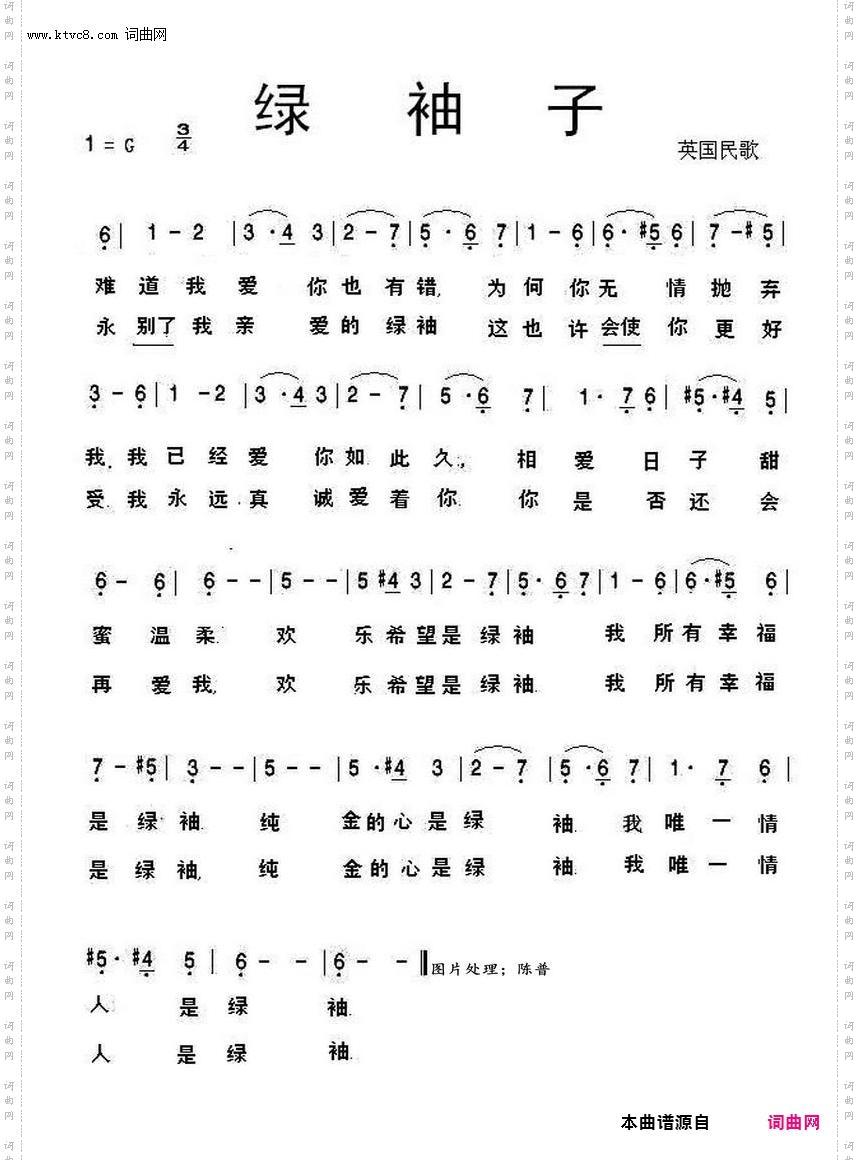 www.ktvc8.com 词曲网
绿 袖 子
1 = G 3/4
英国民歌
6̣ | 1 - 2 | 3 · 4 3 | 2 - 7̣ | 5̣ · 6̣ 7̣ | 1 - 6̣ | 6̣ · #5̣ 6̣ | 7̣ - #5̣ |
难 道 我 爱 你 也 有 错, 为 何 你 无 情 抛 弃
永 别了 我 亲 爱 的 绿 袖 这 也 许 会使 你 更 好
3̣ - 6̣ | 1 - 2 | 3 · 4 3 | 2 - 7̣ | 5̣ · 6̣ 7̣ | 1 · 7̣ 6̣ | #5̣ · #4̣ 5̣ |
我. 我 已 经 爱 你 如 此 久, 相 爱 日 子 甜
受. 我 永 远 真 诚 爱 着 你. 你 是 否 还 会
6̣ - 6̣ | 6̣ - - | 5 - - | 5 #4 3 | 2 - 7̣ | 5̣ · 6̣ 7̣ | 1 - 6̣ | 6̣ · #5̣ 6̣ |
蜜 温 柔. 欢 乐 希 望 是 绿 袖 我 所 有 幸 福
再 爱 我, 欢 乐 希 望 是 绿 袖. 我 所 有 幸 福
7̣ - #5̣ | 3̣ - - | 5 - - | 5 · #4 3 | 2 - 7̣ | 5̣ · 6̣ 7̣ | 1 · 7̣ 6̣ |
是 绿 袖. 纯 金 的 心 是 绿 袖. 我 唯 一 情
是 绿 袖, 纯 金 的 心 是 绿 袖. 我 唯 一 情
#5̣ · #4̣ 5̣ | 6̣ - - | 6̣ - - ‖ 图片处理；陈普
人 是 绿 袖.
人 是 绿 袖.
本曲谱源自 词曲网